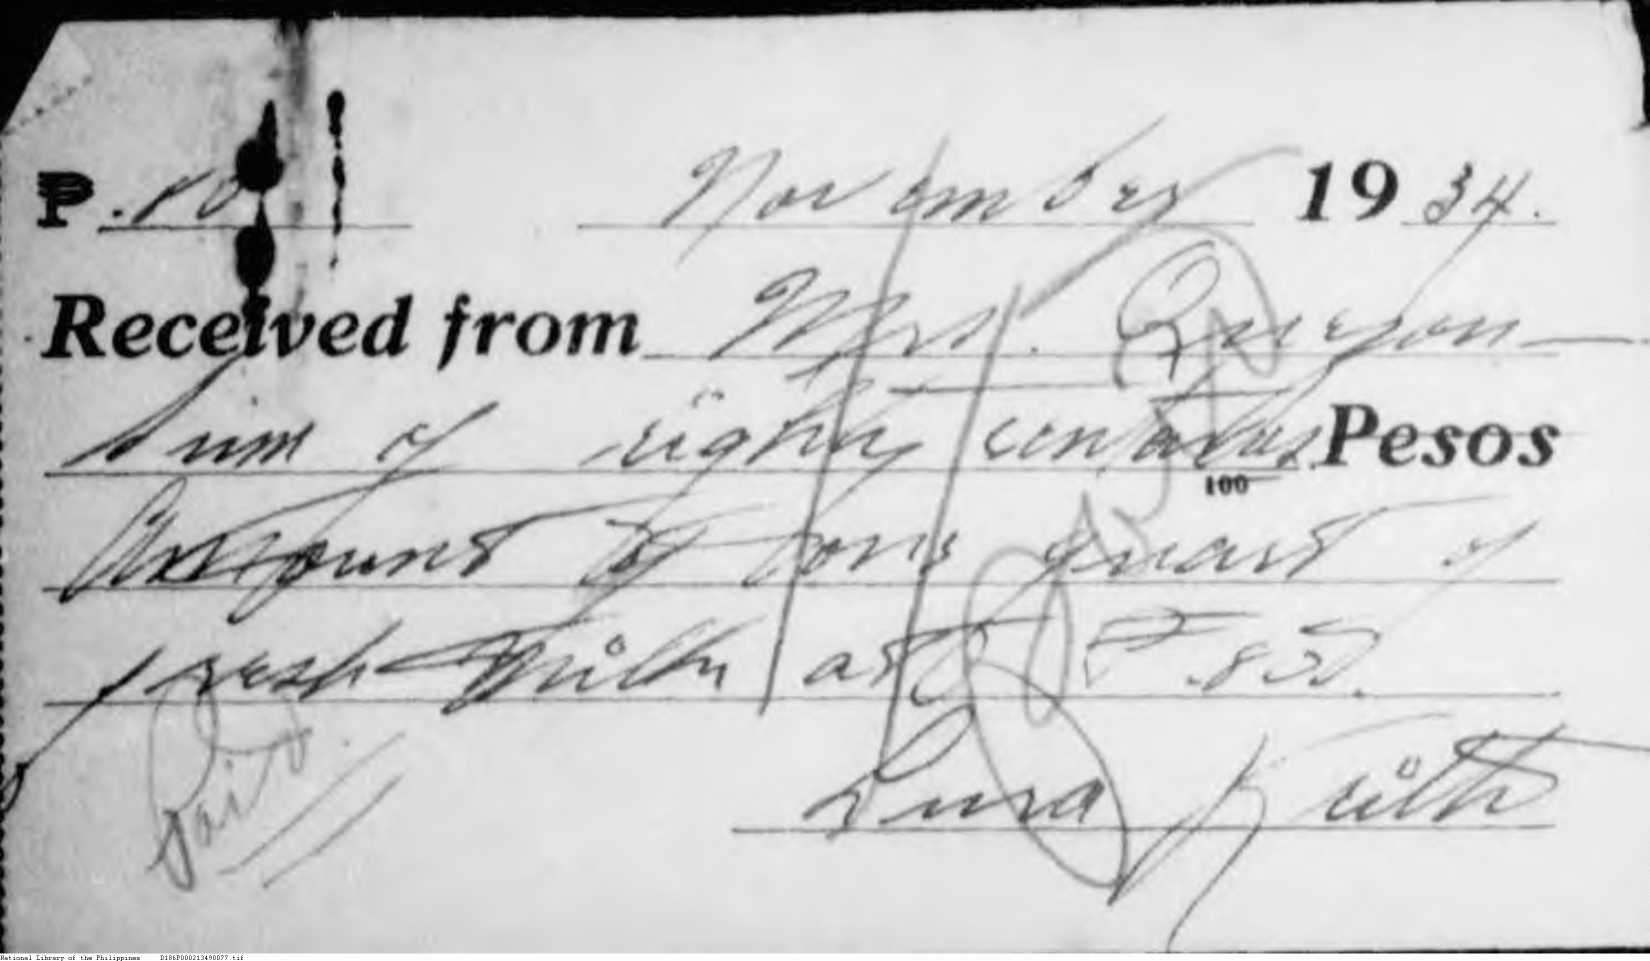 ₱ .80 November 1934.
Received from Mrs. Quezon
Sum of eighty centavos Pesos
100
Amount of one quart of
fresh milk at ₱.80.
Paid
Luisa
National Library of the Philippines D186P000213490077.tif